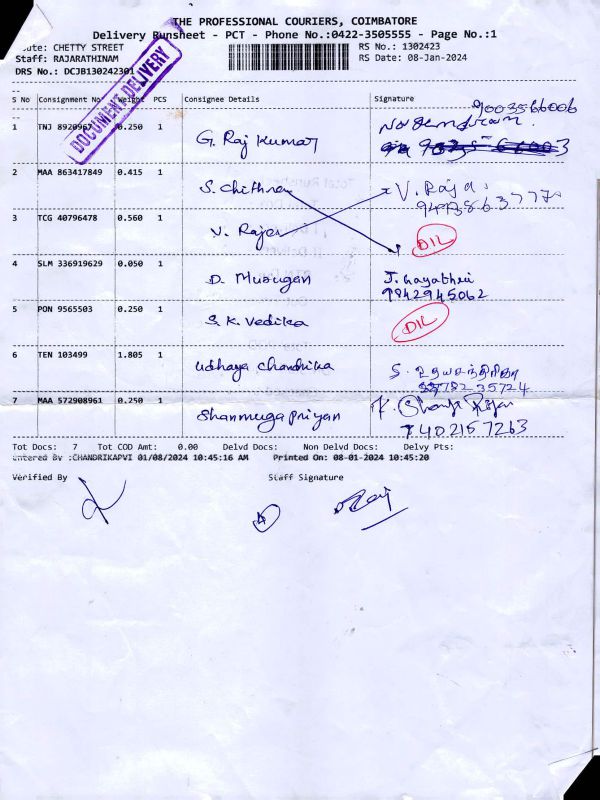 THE PROFESSIONAL COURIERS, COIMBATORE
Delivery Runsheet - PCT - Phone No.:0422-3505555 - Page No.:1
CHETTY STREET
RS No.: 1302423
Staff: RAJARATHINAM
RS Date: 08-Jan-2024
DRS No.: DCJB130242301
DOCUMENT DELIVERY
S No Consignment No Weight PCS Consignee Details Signature
9003566006
1 TNJ 8920967 0.250 1 G. Raj Kumar
2 MAA 863417849 0.415 1 S. Chithra V. Raja
3 TCG 40796478 0.560 1 V. Rajer DIL
4 SLM 336919629 0.050 1 D. Murugan J. Gayathri
9842945062
5 PON 9565503 0.250 1 S. K. Vedika DIL
6 TEN 103499 1.805 1 Udhaya Chandrika S. உதயசந்திரிகா
78235724
7 MAA 572908961 0.250 1 Shanmuga priyan K.
7402157263
Tot Docs: 7 Tot COD Amt: 0.00 Delvd Docs: Non Delvd Docs: Delvy Pts:
Entered By :CHANDRIKAPVI 01/08/2024 10:45:16 AM Printed On: 08-01-2024 10:45:20
Verified By Staff Signature